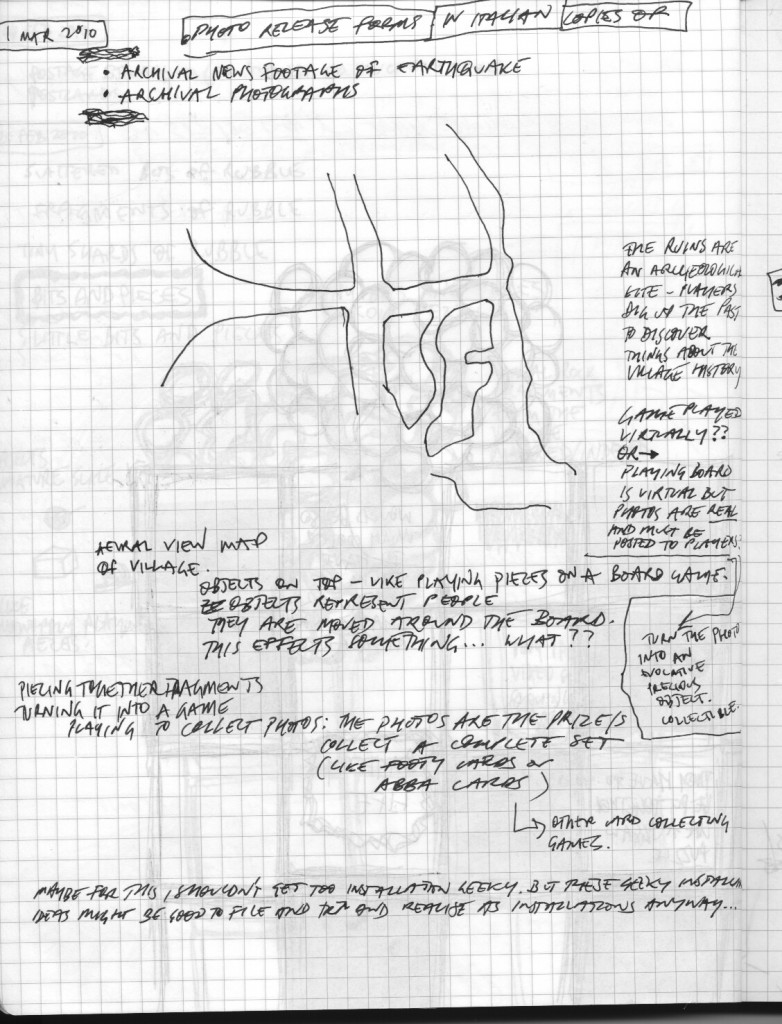 1 MAR 2010
PHOTO RELEASE FORMS IN ITALIAN COPIES OF
• ARCHIVAL NEWS FOOTAGE OF EARTHQUAKE
• ARCHIVAL PHOTOGRAPHS
THE RUINS ARE
AN ARCHEOLOGICAL
SITE - PLAYERS
DIG UP THE PAST
TO DISCOVER
THINGS ABOUT THE
VILLAGE HISTORY
GAME PLAYED
VIRTUALLY??
OR →
PLAYING BOARD
IS VIRTUAL BUT
PHOTOS ARE REAL
AND MUST BE
POSTED TO PLAYERS.
AERIAL VIEW MAP
OF VILLAGE.
OBJECTS ON TOP - LIKE PLAYING PIECES ON A BOARD GAME.
OBJECTS REPRESENT PEOPLE
THEY ARE MOVED AROUND THE BOARD.
THIS EFFECTS SOMETHING... WHAT??
TURN THE PHOTO
INTO AN
EVOCATIVE
PRECIOUS
OBJECT.
COLLECTIBLE.
PIECING TOGETHER FRAGMENTS
TURNING IT INTO A GAME
PLAYING TO COLLECT PHOTOS: THE PHOTOS ARE THE PRIZE/S
COLLECT A COMPLETE SET
(LIKE FOOTY CARDS or
ABBA CARDS)
↳ OTHER CARD COLLECTING
GAMES.
MAYBE FOR THIS, I SHOULDN'T GET TOO INSTALLATION GEEKY. BUT THESE GEEKY INSTALL
IDEAS MIGHT BE GOOD TO FILE AND TRY AND REALISE AS INSTALLATIONS ANYWAY...